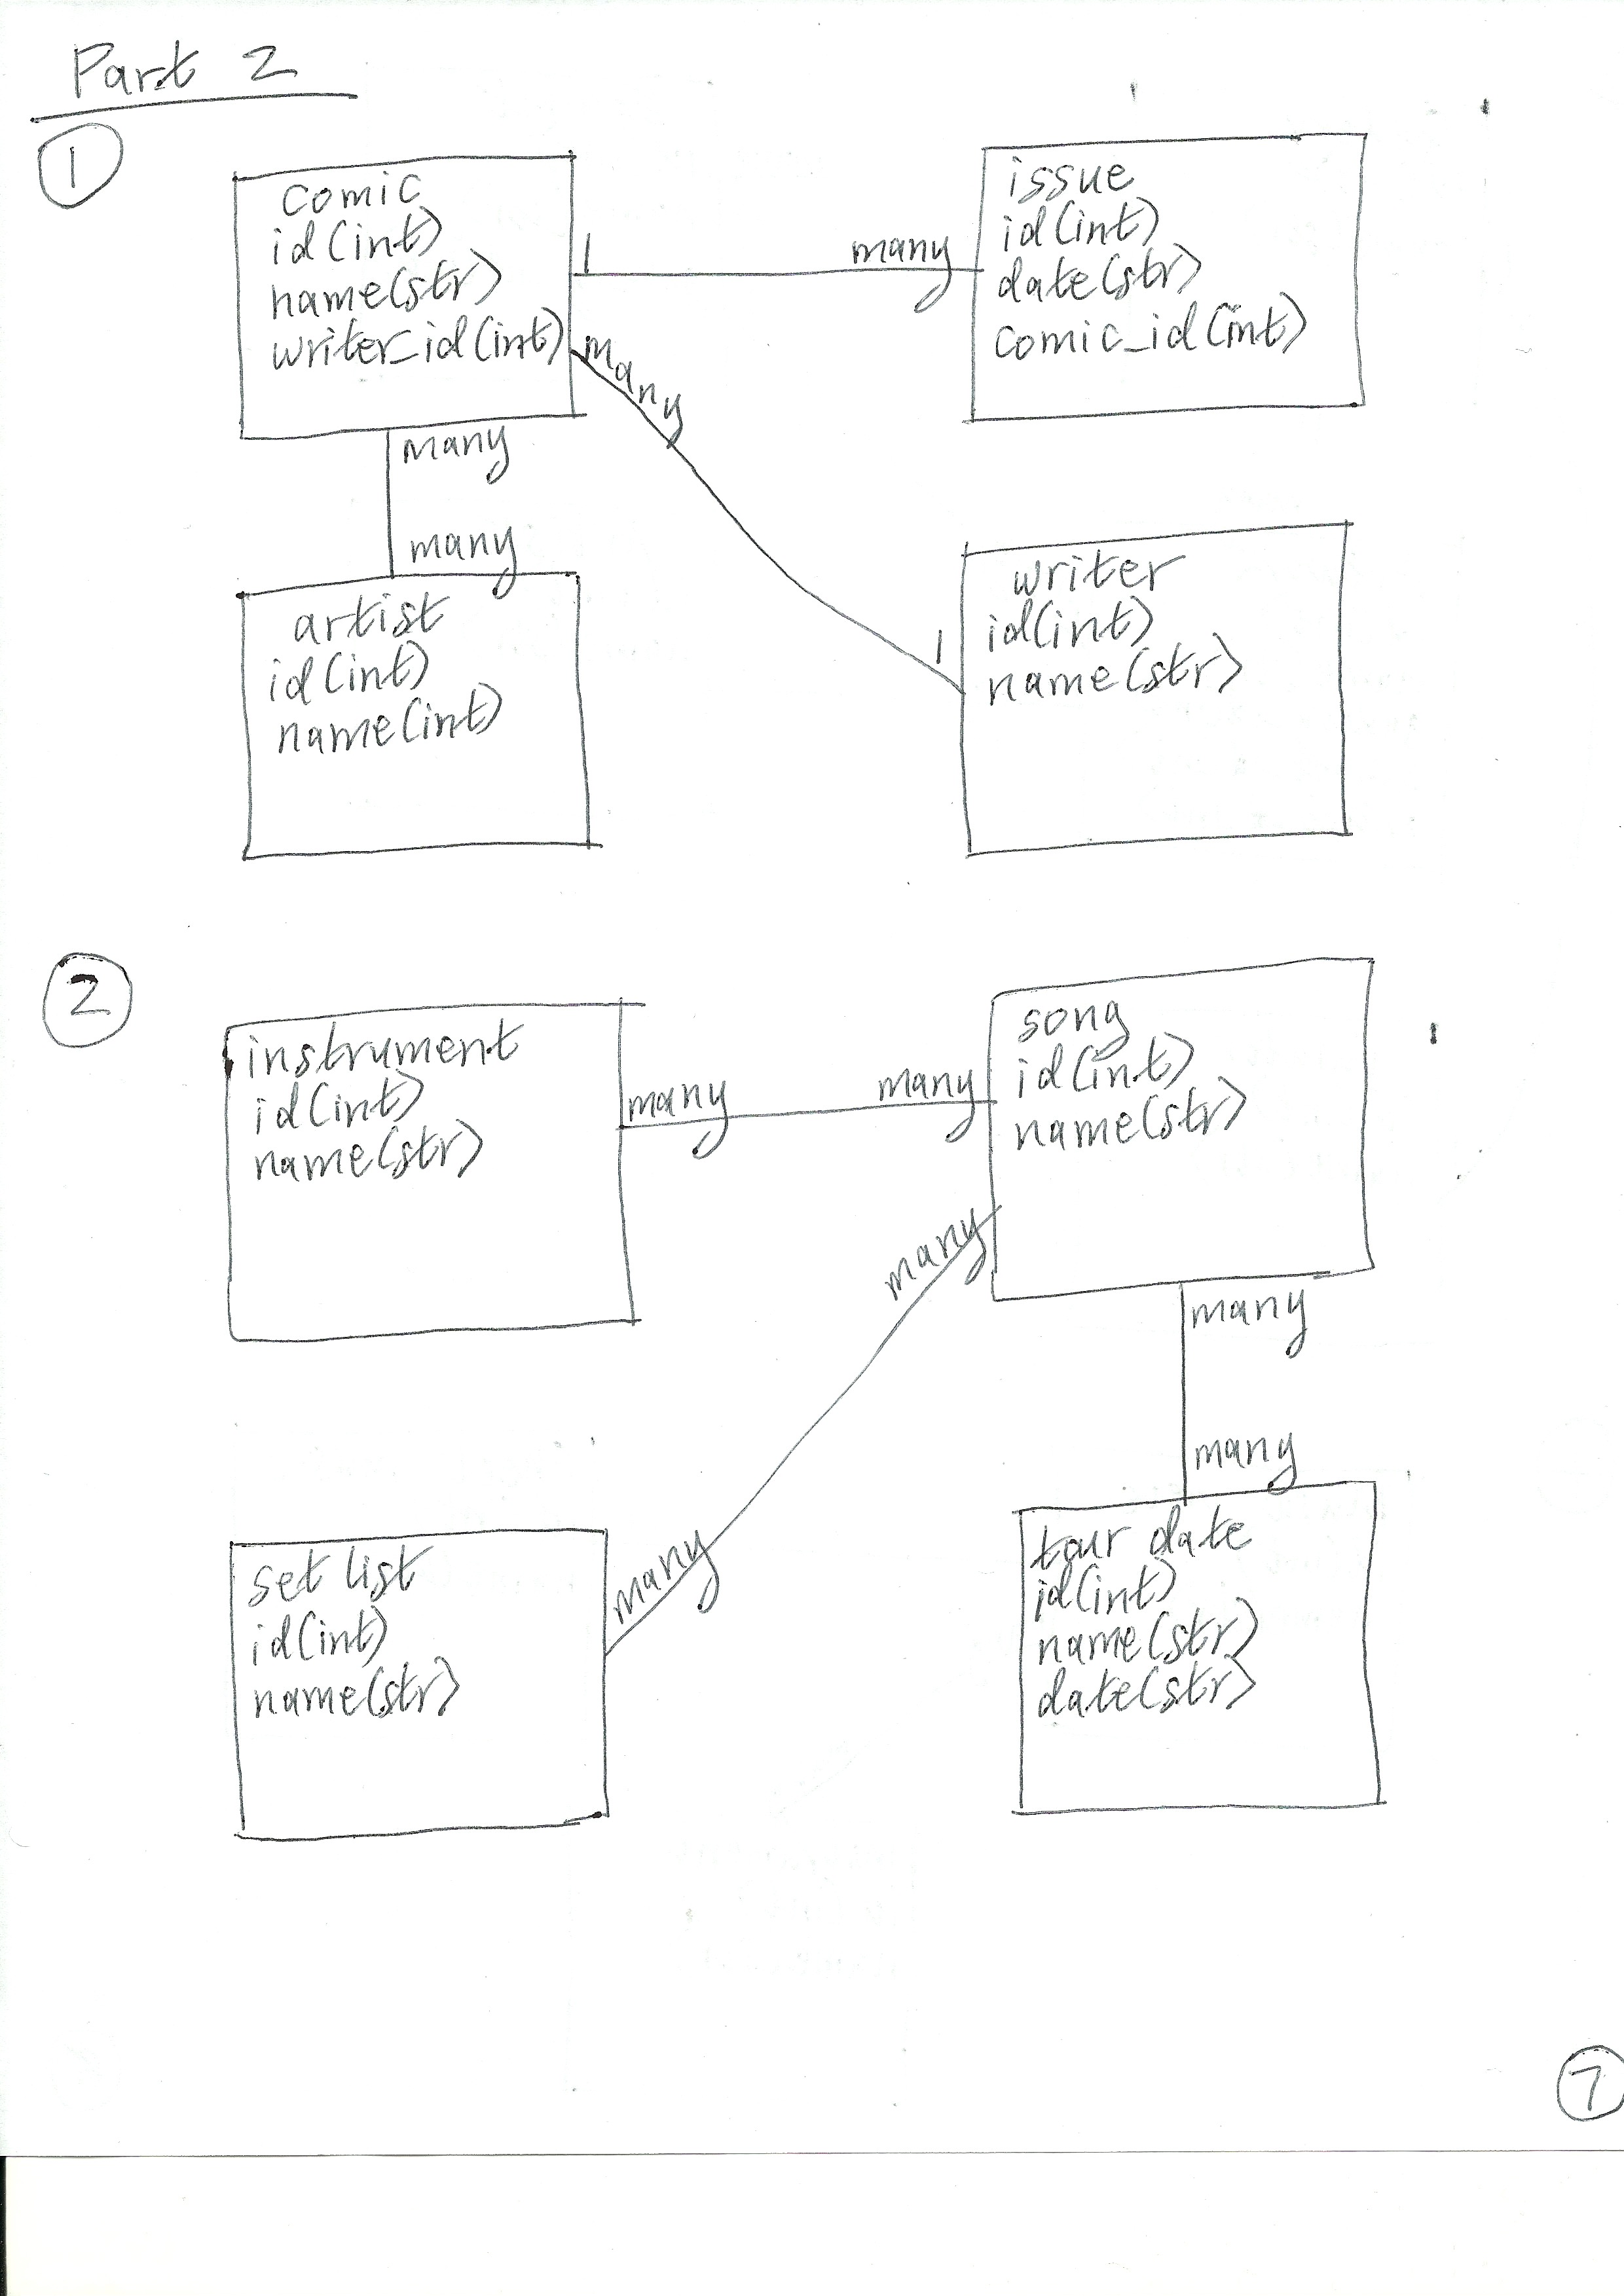 Part 2
1
comic
id(int)
name(str)
writer_id(int)
1
many
issue
id(int)
date(str)
comic_id(int)
many
many
many
1
artist
id(int)
name(int)
writer
id(int)
name(str)
2
instrument
id(int)
name(str)
many
many
song
id(int)
name(str)
many
many
many
many
set list
id(int)
name(str)
tour date
id(int)
name(str)
date(str)
7